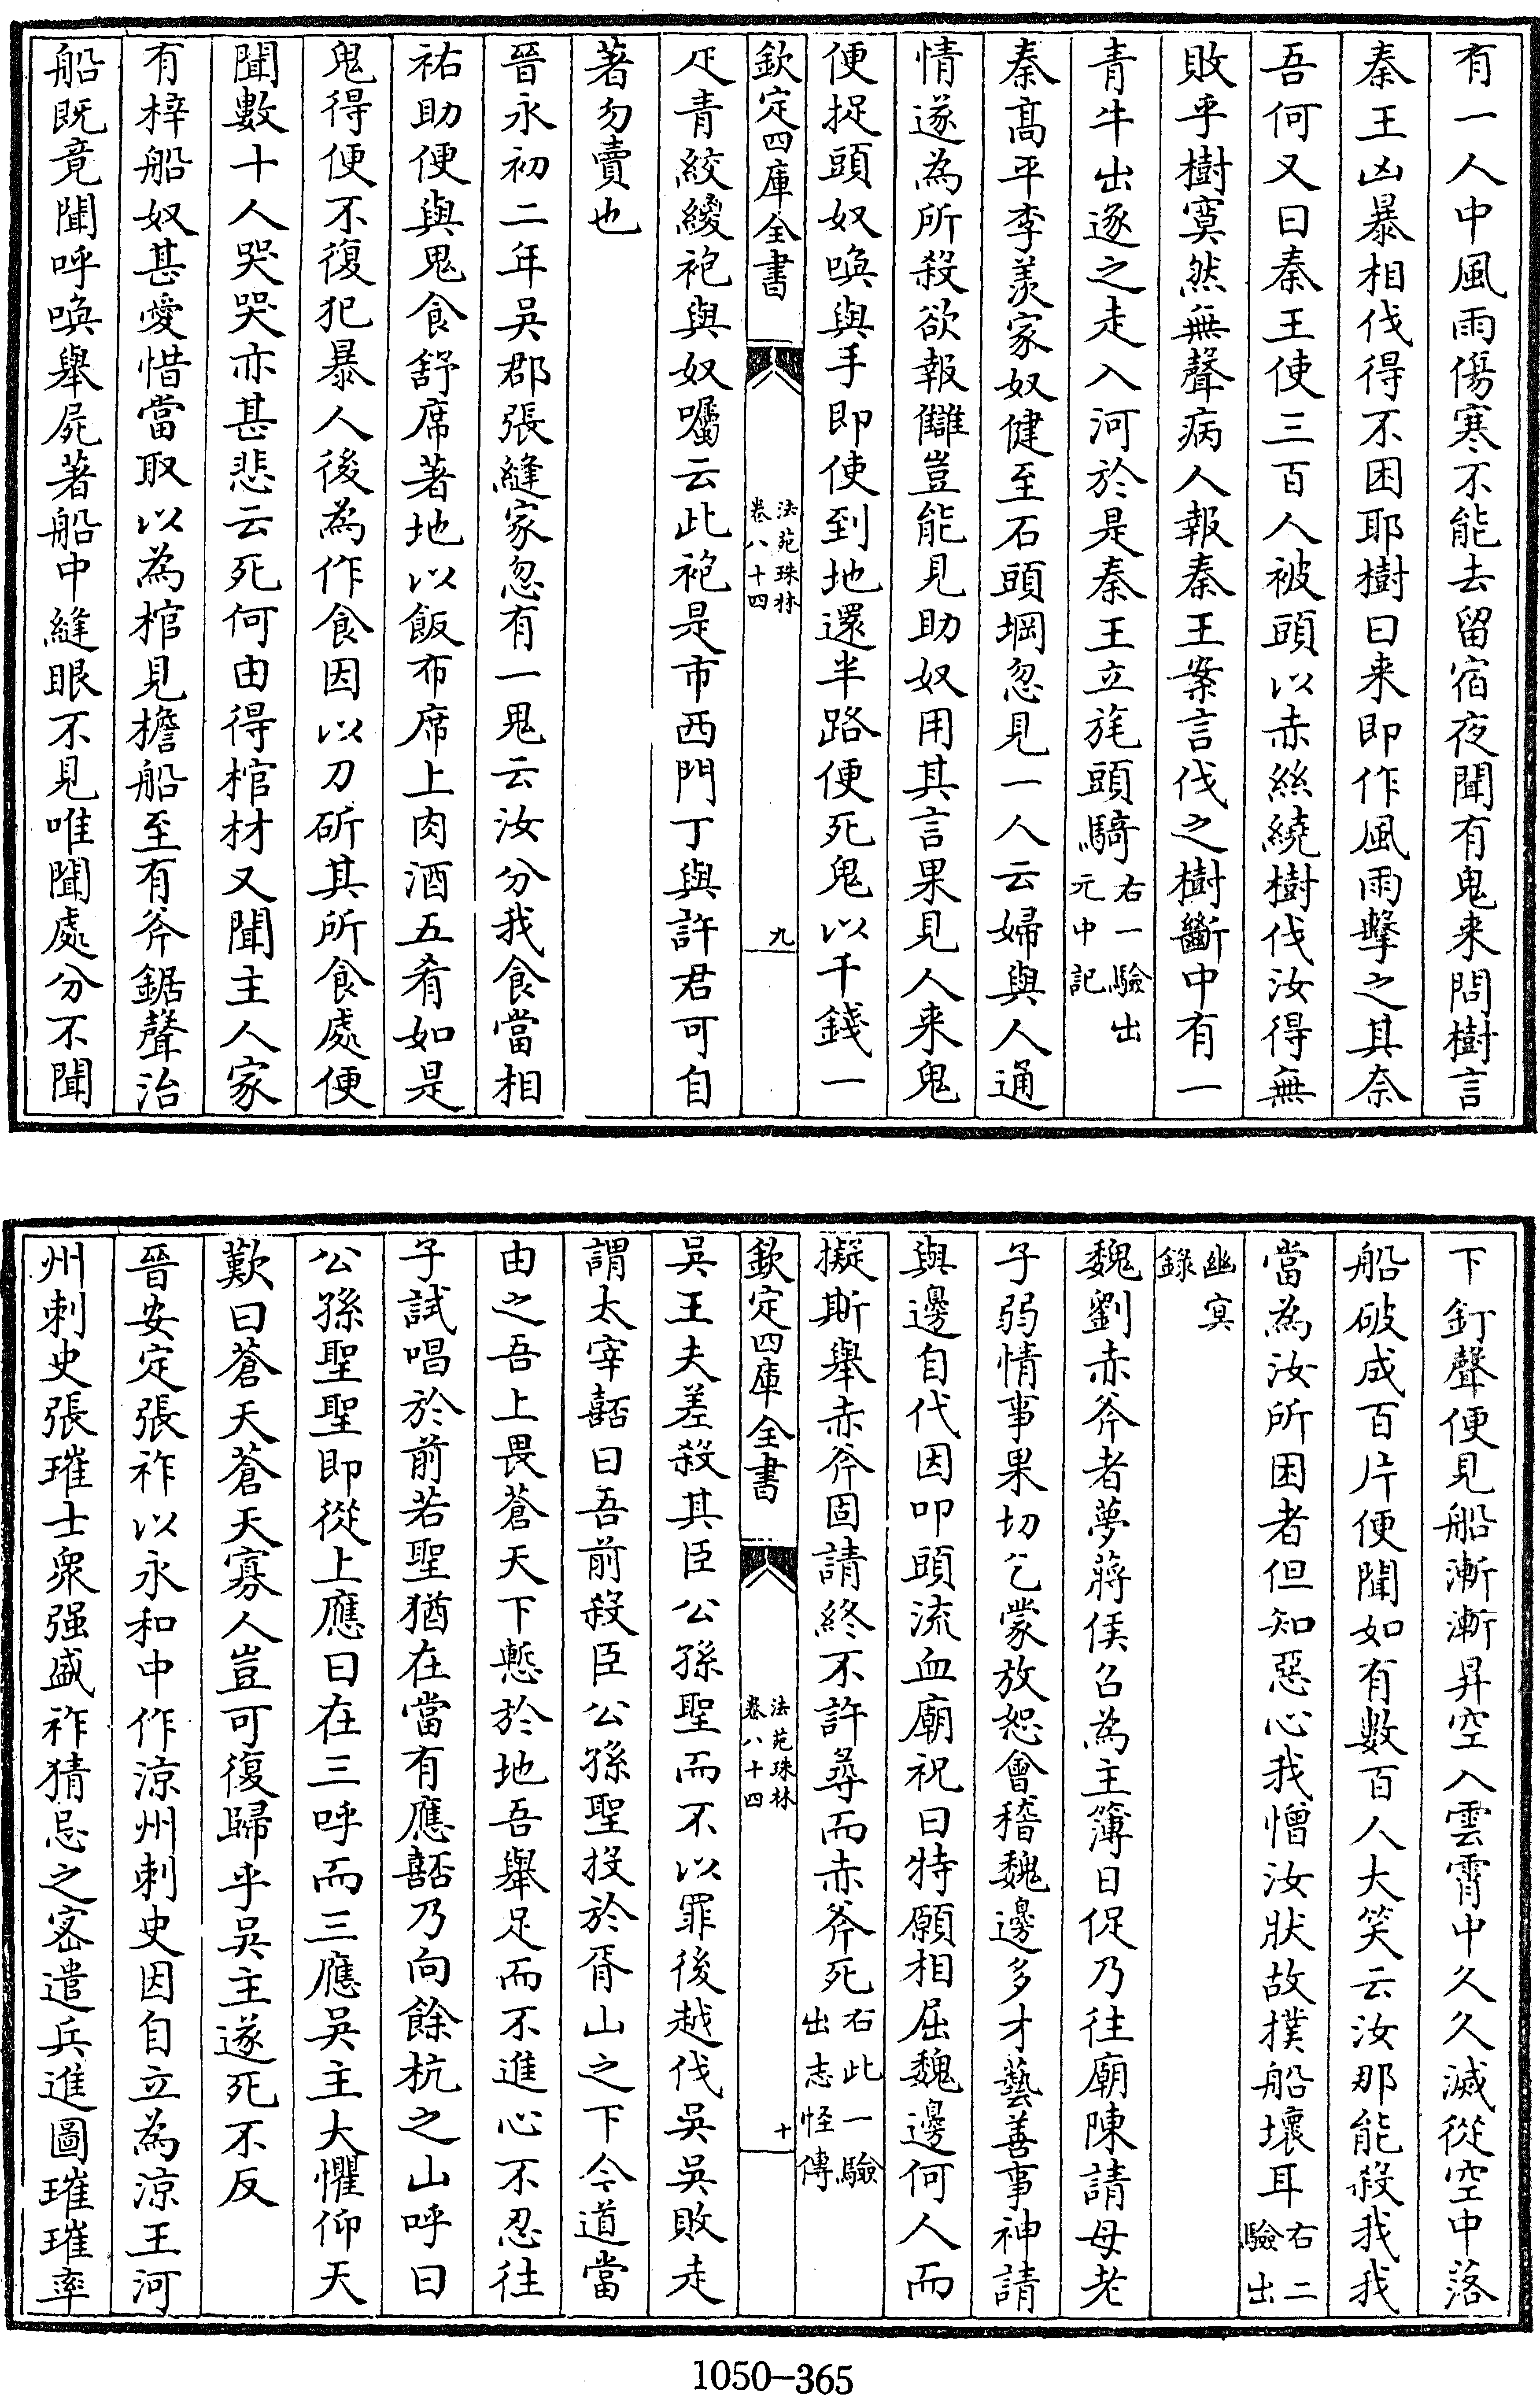 有一人中風雨傷寒不能去留宿夜聞有鬼来問樹言
秦王凶暴相伐得不困耶樹曰来即作風雨擊之其奈
吾何又曰秦王使三百人被頭以赤絲繞樹伐汝得無
敗乎樹寞然無聲病人報秦王案言伐之樹斷中有一
青牛出逐之走入河於是秦王立旄頭騎右一驗出
元中記
秦髙平李羡家奴健至石頭堈忽見一人云婦與人通
情遂為所殺欲報讎豈能見助奴用其言果見人来鬼
便捉頭奴喚與手即使到地還半路便死鬼以千錢一
欽定四庫全書
法苑珠林
卷八十四
九
疋青絞綾袍與奴囑云此袍是市西門丁與許君可自
著勿賣也
晉永初二年吳郡張縫家忽有一鬼云汝分我食當相
祐助便與鬼食舒席著地以飯布席上肉酒五肴如是
鬼得便不復犯暴人後為作食因以刀斫其所食處便
聞數十人哭哭亦甚悲云死何由得棺材又聞主人家
有梓船奴甚愛惜當取以為棺見檐船至有斧鋸聲治
船既竟聞呼喚舉屍著船中縫眼不見唯聞處分不聞
下釘聲便見船漸漸昇空入雲霄中久久滅從空中落
船破成百片便聞如有數百人大笑云汝那能殺我我
當為汝所困者但知惡心我憎汝狀故撲船壞耳右二
驗出
幽㝠
錄
魏劉赤斧者夢蔣侯召為主簿日促乃往廟陳請母老
子弱情事果切乞蒙放恕會稽魏邊多才藝善事神請
與邊自代因叩頭流血廟祝曰特願相屈魏邊何人而
擬斯舉赤斧固請終不許尋而赤斧死右此一驗
出志怪傳
欽定四庫全書
法苑珠林
卷八十四
十
吳王夫差殺其臣公孫聖而不以罪後越伐吳吳敗走
謂太宰嚭曰吾前殺臣公孫聖投於胥山之下今道當
由之吾上畏蒼天下慙於地吾舉足而不進心不忍往
子試唱於前若聖猶在當有應嚭乃向餘杭之山呼曰
公孫聖聖即從上應曰在三呼而三應吳主大懼仰天
歎曰蒼天蒼天寡人豈可復歸乎吳主遂死不反
晉安定張祚以永和中作涼州刺史因自立為涼王河
州刺史張璀士衆强盛祚猜忌之宻遣兵進圖璀璀率
1050-365